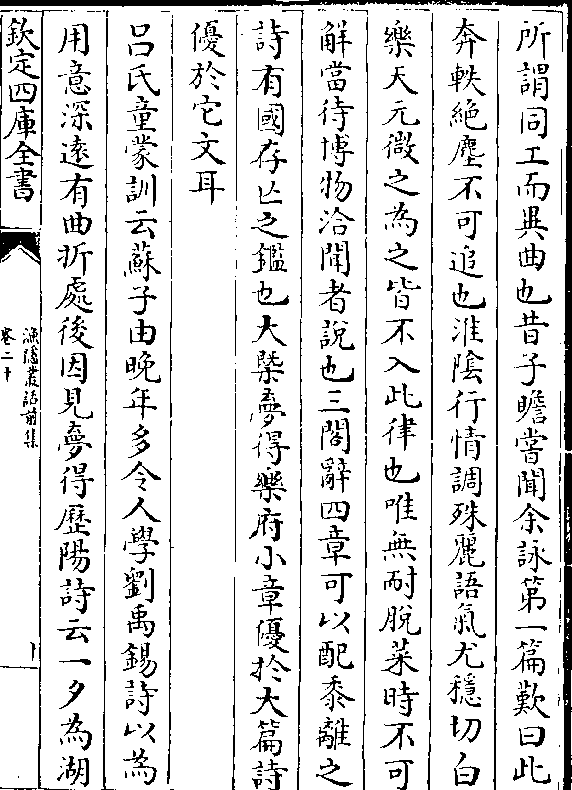 所謂同工而異曲也昔子瞻嘗聞余詠第一篇歎曰此
奔軼絕塵不可追也淮陰行情調殊麗語氣尤穩切白
樂天元微之為之皆不入此律也唯無耐脫菜時不可
解當待博物洽聞者說也三閣辭四章可以配黍離之
詩有國存亡之鑑也大槩夢得樂府小章優於大篇詩
優於它文耳
呂氏童蒙訓云蘇子由晚年多令人學劉禹錫詩以為
用意深遠有曲折處後因見夢得歷陽詩云一夕為湖
欽定四庫全書
漁隱叢話前集
卷二十